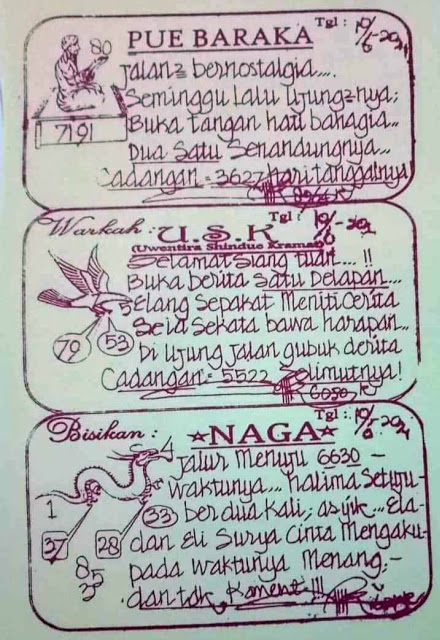 Tgl : 10/6-2021
PUE BARAKA
80
Jalan2 bernostalgia....
Seminggu Lalu Ujung2nya;
7191
Buka tangan hati bahagia...
Dua Satu Senandungnya...
Cadangan = 3627 hari tanggalnya!
Warkah : U.S.K
Tgl : 10/6-202
(Uwentira Shinduo Kramat)
Selamat Siang tuan.... !!
Buka berita Satu Delapan...
Elang Sepakat Meniti Cerita
Seia Sekata bawa harapan...
79 53
Di Ujung Jalan gubuk derita
Cadangan = 5522 Selimutnya!
6050
Tgl : 10/6-2021
Bisikan : NAGA
4
Jalur Menuju 6630 -
Waktunya... halima Setuju-
1
33 berdua kali; asyik... Ela-
37 28
dan Eli Surya Cinta Mengaku-
85
35
pada Waktunya Menang,-
dan tdk, Koment !!!